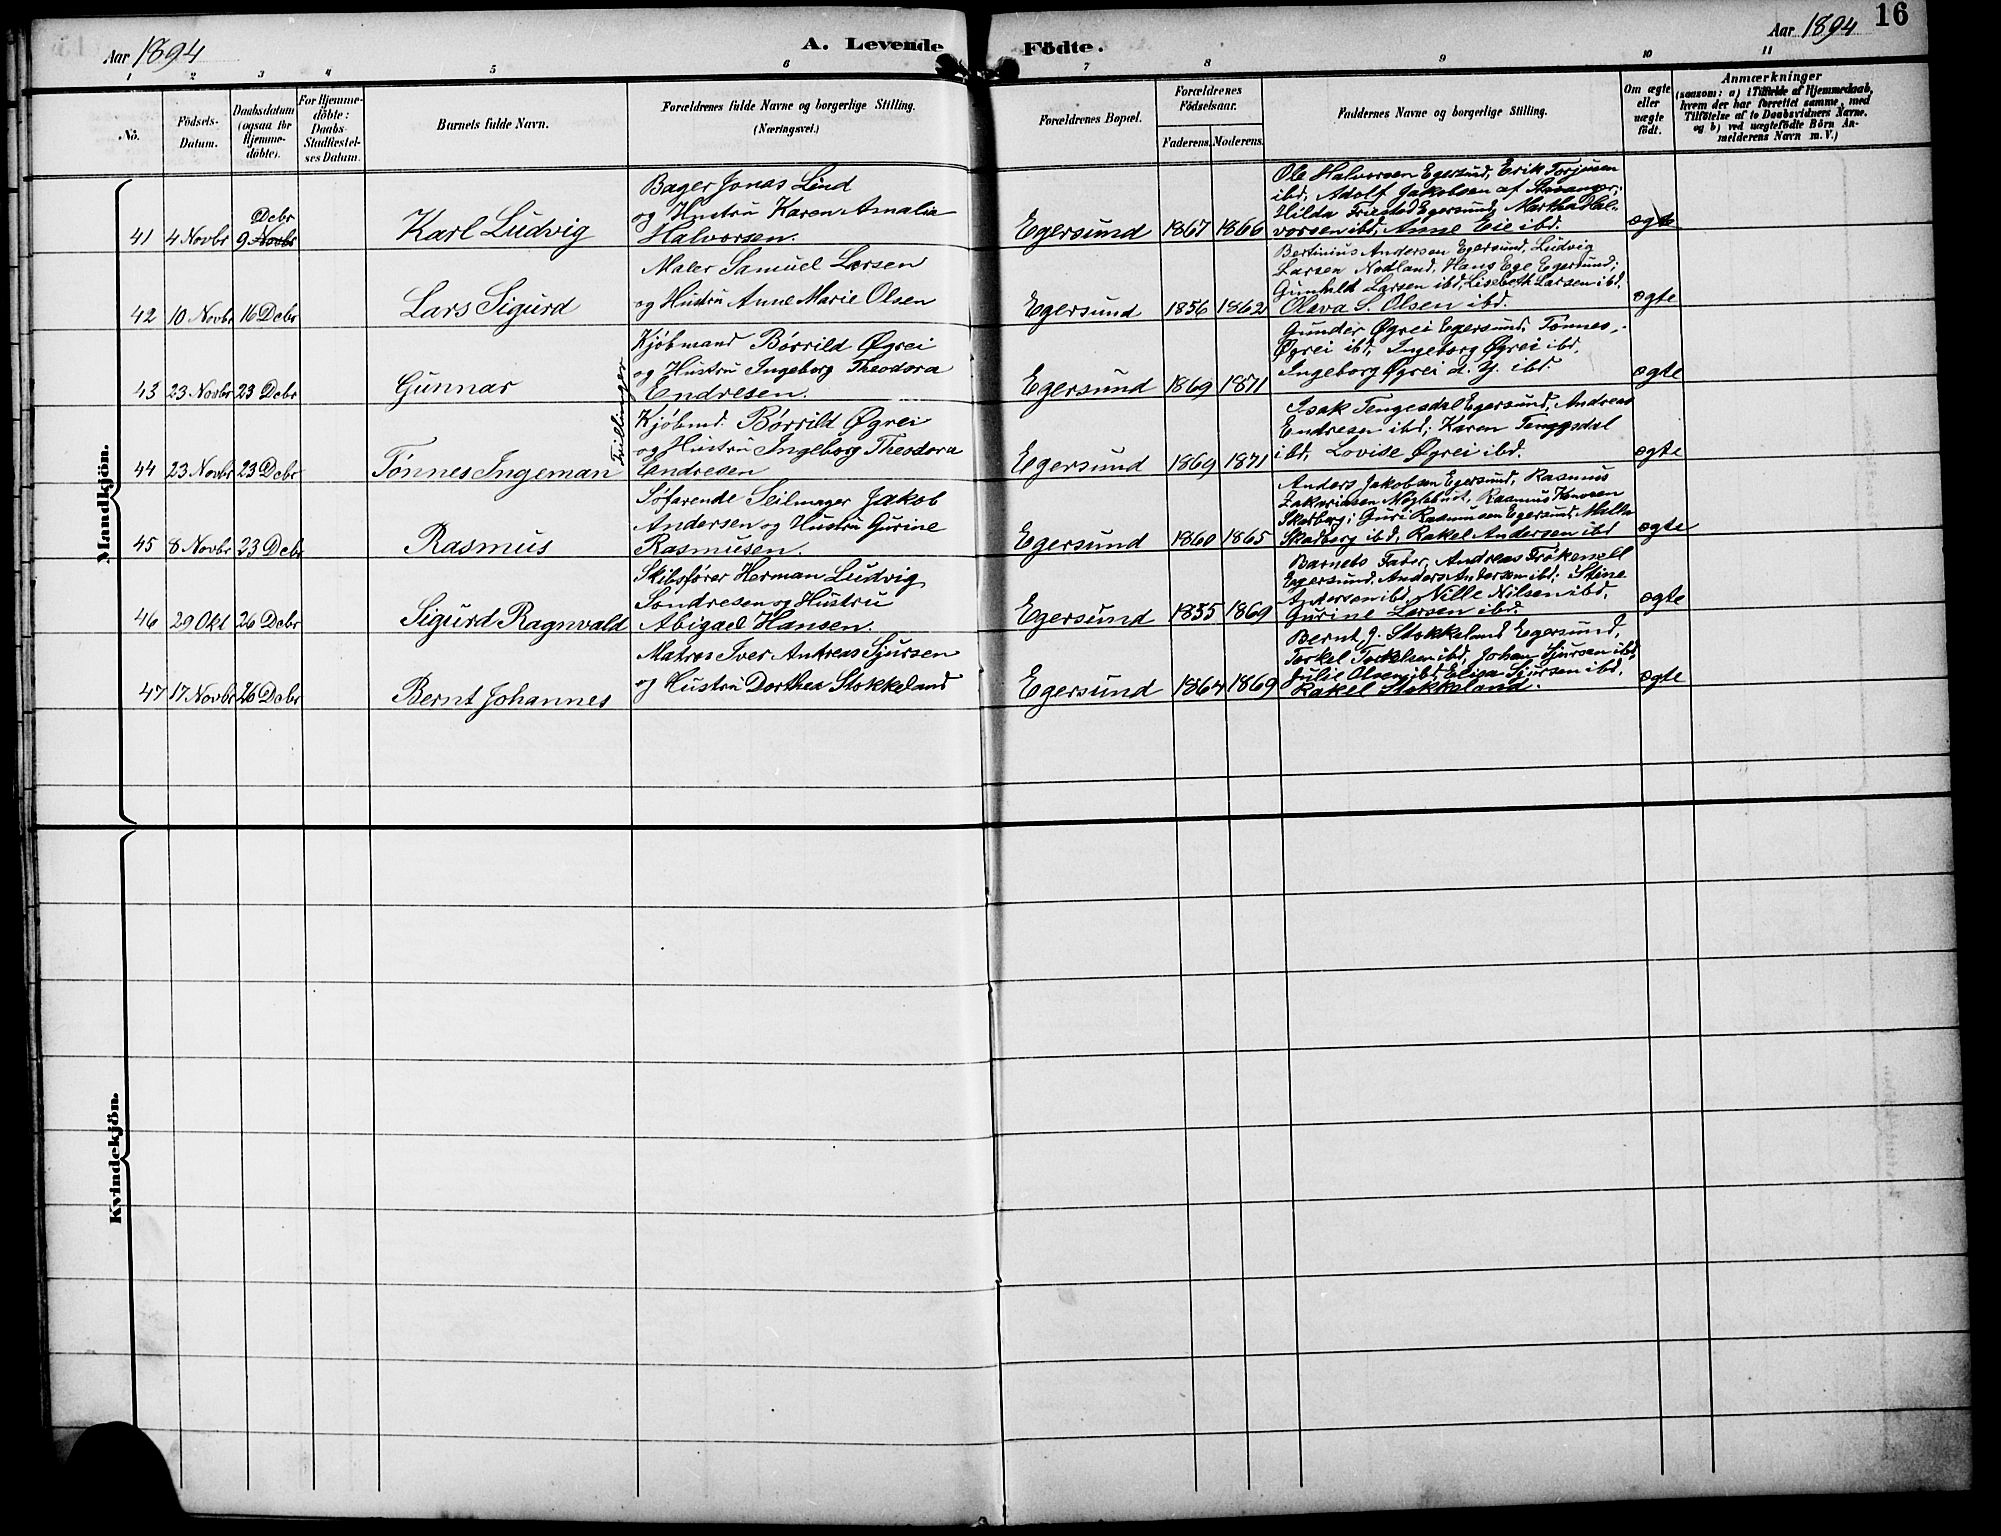 Aar 1894
A. Levende Födte.
Aar 1894
16
1 2 3 4 5 6 7 8 9 10 11
No.
Födsels-Datum.
Daabsdatum (ogsaa for Hjemme-döbte).
For Hjemme-döbte: Daabs-Stadfæstel-ses Datum.
Barnets fulde Navn.
Forældrenes fulde Navne og borgerlige Stilling.
(Næringsvei.)
Forældrenes Bopæl.
Forældrenes Födselsaar.
Faderens. Moderens.
Faddernes Navne og borgerlige Stilling.
Om ægte eller uægte födt.
Anmærkninger
(saasom: a) i Tilfælde af Hjemmedaab,
hvem der har forrettet samme, med
Tilföielse af to Daabsvidners Navne,
og b) ved uægtefödte Börn An-
melderens Navn m. V.)
Mandkjön.
41 4 Novbr 9 Novbr Decbr Karl Ludvig
Bager Jonas Lind
og Hustru Karen Amalia
Halvorsen.
Egersund 1867 1866
Ole Halvorsen Egersund, Erik Torjusen
ibd, Adolf Jakobsen af Stavanger;
Hilda Friestad Egersund, Martha Hal-
vorsen ibd, Anne Eie ibd.
ægte
42 10 Novbr 16 Decbr Lars Sigurd
Maler Samuel Larsen
og Hustru Anne Marie Olsen
Egersund 1856 1862
Bertinius Andersen Egersund, Ludvig
Larsen Nodland, Hans Ege Egersund;
Gunhild Larsen ibd, Lisebeth Larsen ibd.
Olava S. Olsen ibd.
ægte
43 23 Novbr 23 Decbr Gunnar
Tvillinger
Kjøbmand Børrild Øgrei
og Hustru Ingeborg Theodora
Endresen.
Egersund 1869 1871
Gunder Øgrei Egersund, Tønnes
Øgrei ibd; Ingeborg Øgrei ibd,
Ingeborg Øgrei d. Y. ibd.
ægte
44 23 Novbr 23 Decbr Tønnes Ingeman
Kjøbmd. Børrild Øgrei
og Hustru Ingeborg Theodora
Endresen
Egersund 1869 1871
Isak Tengesdal Egersund, Andreas
Endresen ibd; Karen Tenggsdal
ibd, Lovise Øgrei ibd.
ægte
45 8 Novbr 23 Decbr Rasmus
Søfarende Seilmager Jakob
Andersen og Hustru Gurine
Rasmusen.
Egersund 1860 1865
Anders Jakobsen Egersund, Rasmus
Zakariasen Møglebust, Rasmus
Skadberg; Guri Rasmusen Egersund, Malla
Skadberg ibd, Rakel Andersen ibd
ægte
46 29 Okt 26 Decbr Sigurd Ragnvald
Skibsfører Herman Ludvig
Sondresen og Hustru
Abigael Hansen.
Egersund 1855 1869
Barnets Fader, Andreas
Egersund, Anders Andersen ibd; Stine
Andersen ibd, Nille Nilsen ibd,
Gurine Larsen ibd.
ægte
47 17 Novbr 26 Decbr Bernt Johannes
Matros Iver Antreas Sjursen
og Hustru Dorthea Stokkeland
Egersund 1864 1869
Bernt J. Stokkeland Egersund,
Torkel Torkelsen ibd, Johan Sjursen ibd,
Julie Olsen ibd, Elisa Sjursen ibd,
Rakel Stokkeland.
ægte
Kvindekjön.